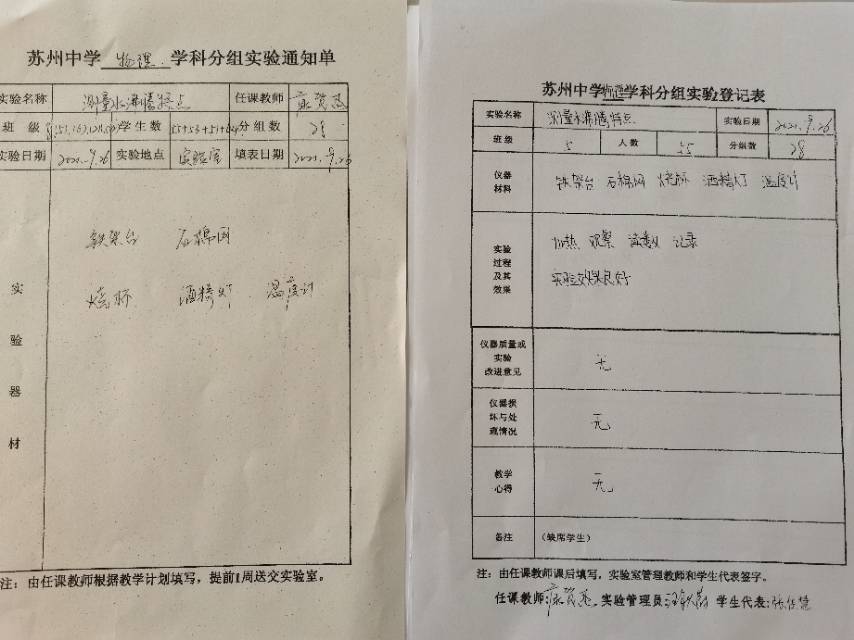 苏州中学 物理 学科分组实验通知单
实验名称 测量水沸腾特点 任课教师
班 级 学生数 55+53+51+ 分组数 28
实验日期 2021.9.26 实验地点 实验室 填表日期 2021.9.26
铁架台 石棉网
烧杯 酒精灯 温度计
实
验
器
材
注：由任课教师根据教学计划填写，提前1周送交实验室。
苏州中学物理学科分组实验登记表
实验名称 测量水沸腾特点 实验日期 2021.9.26
班级 5 人数 55 分组数 28
仪器
材料
铁架台 石棉网 烧杯 酒精灯 温度计
实验
过程
及其
效果
加热 观察 读数 记录
实验效果良好
仪器质量或
实验
改进意见
无
仪器损
坏与处
理情况
无
教学
心得
无
备注 （缺席学生）
注：由任课教师课后填写，实验室管理教师和学生代表签字。
任课教师: 实验管理员: 学生代表: